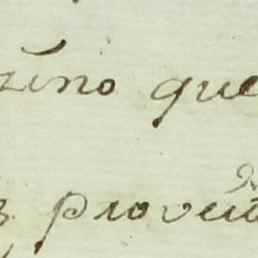 zino que
provei